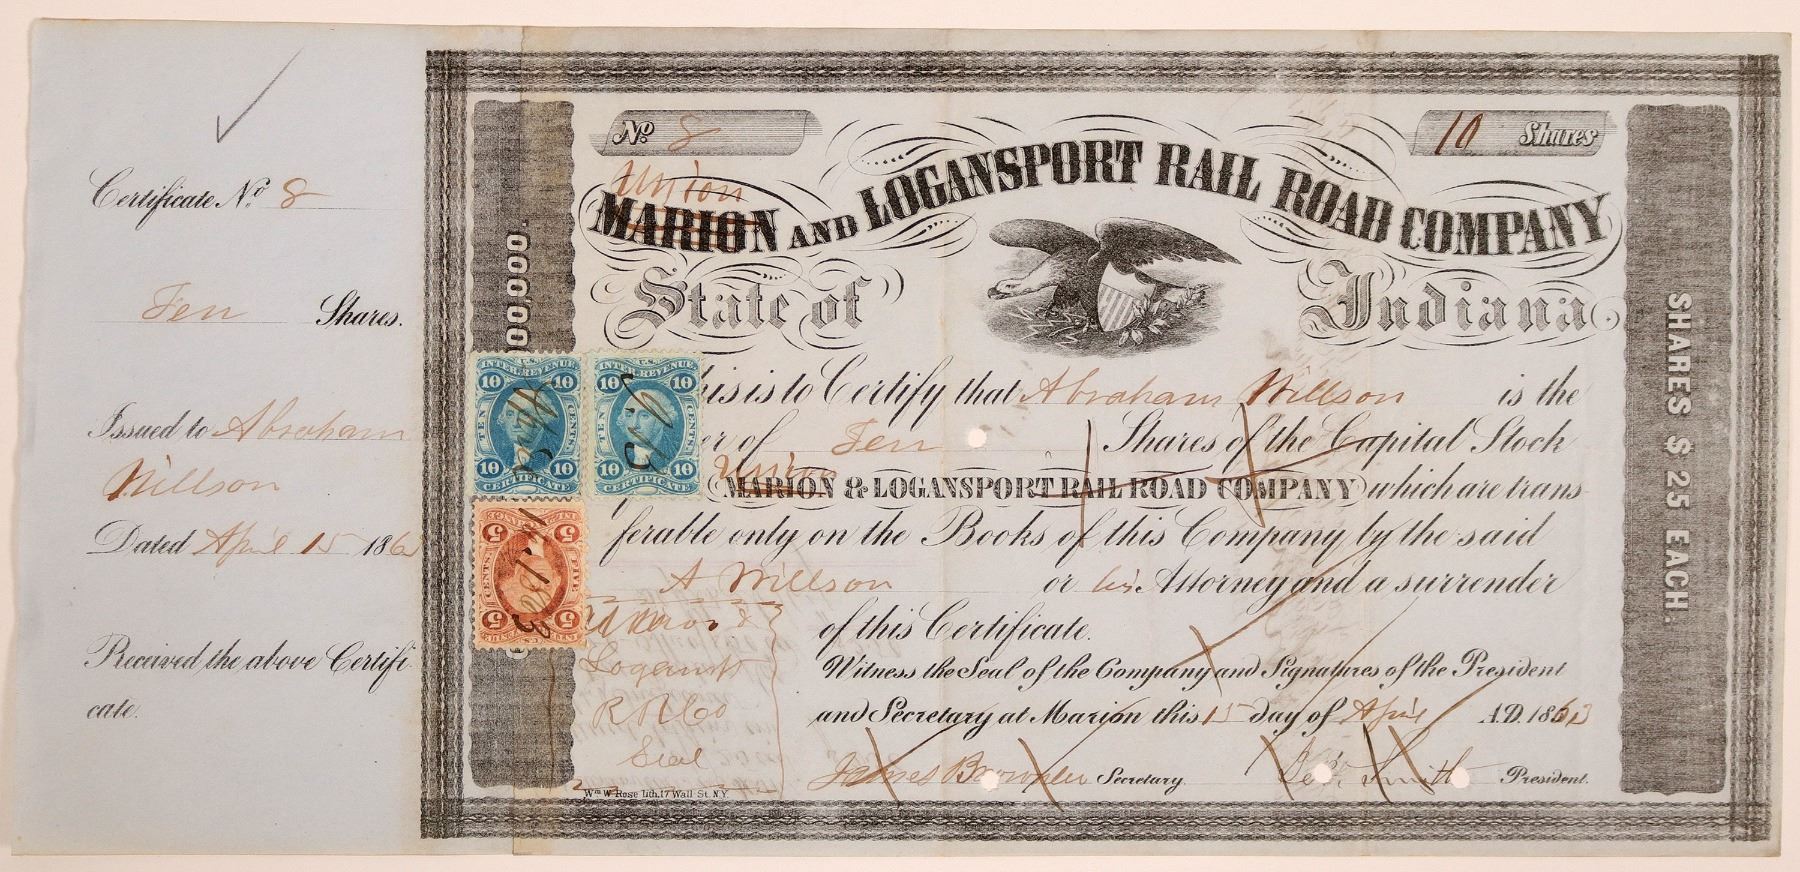 Certificate No 8
Ten Shares.
Issued to Abraham
Willson
Dated April 15 186
Received the above Certifi
cate.
No 8
10 Shares
Union
MARION AND LOGANSPORT RAIL ROAD COMPANY
State of Indiana
00,000.
SHARES $25 EACH.
his is to Certify that Abraham Willson is the
er of Ten Shares of the Capital Stock
Union
MARION & LOGANSPORT RAIL ROAD COMPANY which are trans
ferable only on the Books of this Company by the said
A Willson or his Attorney and a surrender
of this Certificate.
Witness the Seal of the Company and Signatures of the President
and Secretary at Marion this 15 day of April A.D. 1863
Union &
Logansp
RR Co
Seal
James Brownlee Secretary.
Smith President.
Wm W Rose lith. 17 Wall St. N.Y.
U.S.
INTER. REVENUE
10 10
TEN CENTS
10 10
CERTIFICATE
U.S.
INTER. REVENUE
10 10
TEN CENTS
10 10
CERTIFICATE
5 5
FIVE CENTS
5 5